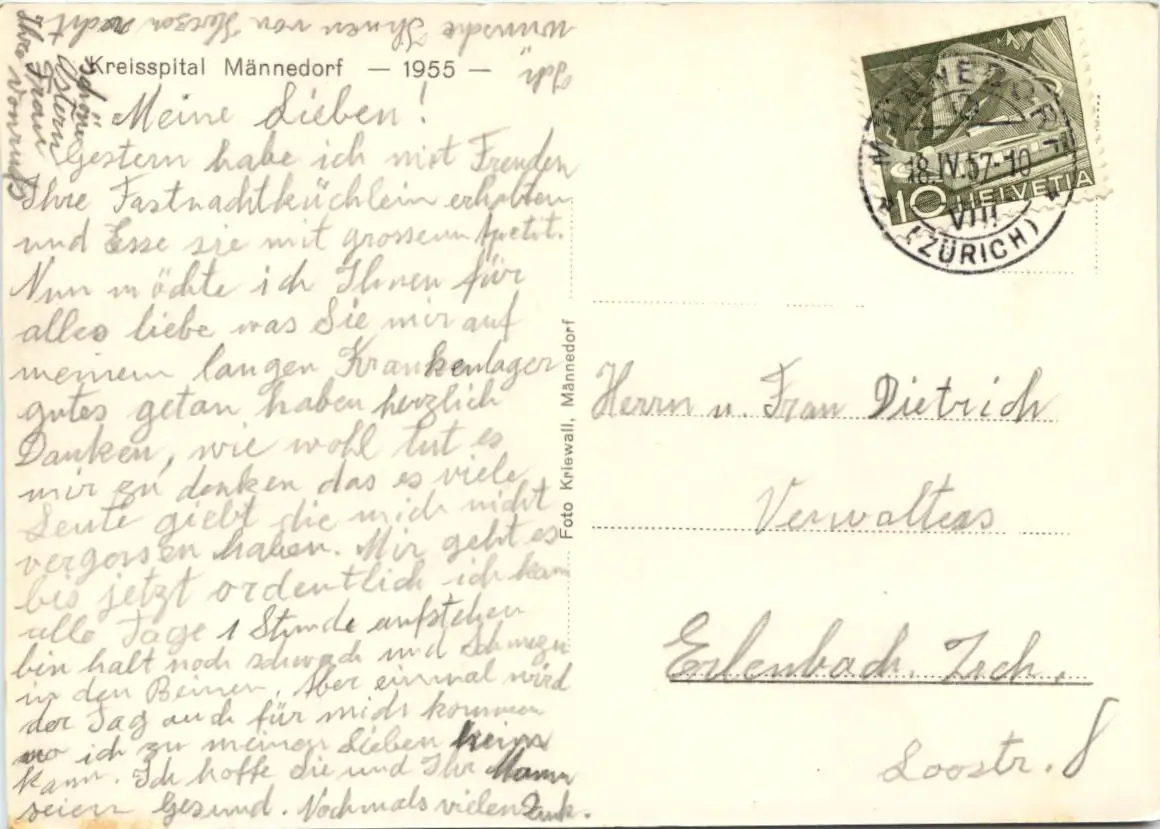 Kreisspital Männedorf — 1955 —
Meine Lieben!
Gestern habe ich mit Freuden
Ihre Fastnachtküchlein erhalten
und Esse sie mit grossem Apetit.
Nun möchte ich Ihnen für
alles liebe was Sie mir auf
meinem langen Krankenlager
gutes getan haben herzlich
Danken, wie wohl tut es
mir zu denken das es viele
Leute giebt die mich nicht
vergessen haben. Mir geht es
bis jetzt ordentlich ich kann
alle Tage 1 Stunde aufstehen
bin halt noch schwach und Schmerzen
in den Beinen. Aber einmal wird
der Tag auch für mich kommen
wo ich zu meinen Lieben heim
kann. Ich hoffe Sie und Ihr Mann
seien Gesund. Nochmals vielen Dank.
Ich
wünsche Ihnen von Herzen recht
schöne
Ostern
Ihre Frau
Foto Kriewall, Männedorf
MÄNNEDORF
18.IV.57-10
VIII
(ZÜRICH)
10 HELVETIA
Herrn u. Frau Dietrich
Verwalters
Erlenbach. Zch.
Loostr. 8